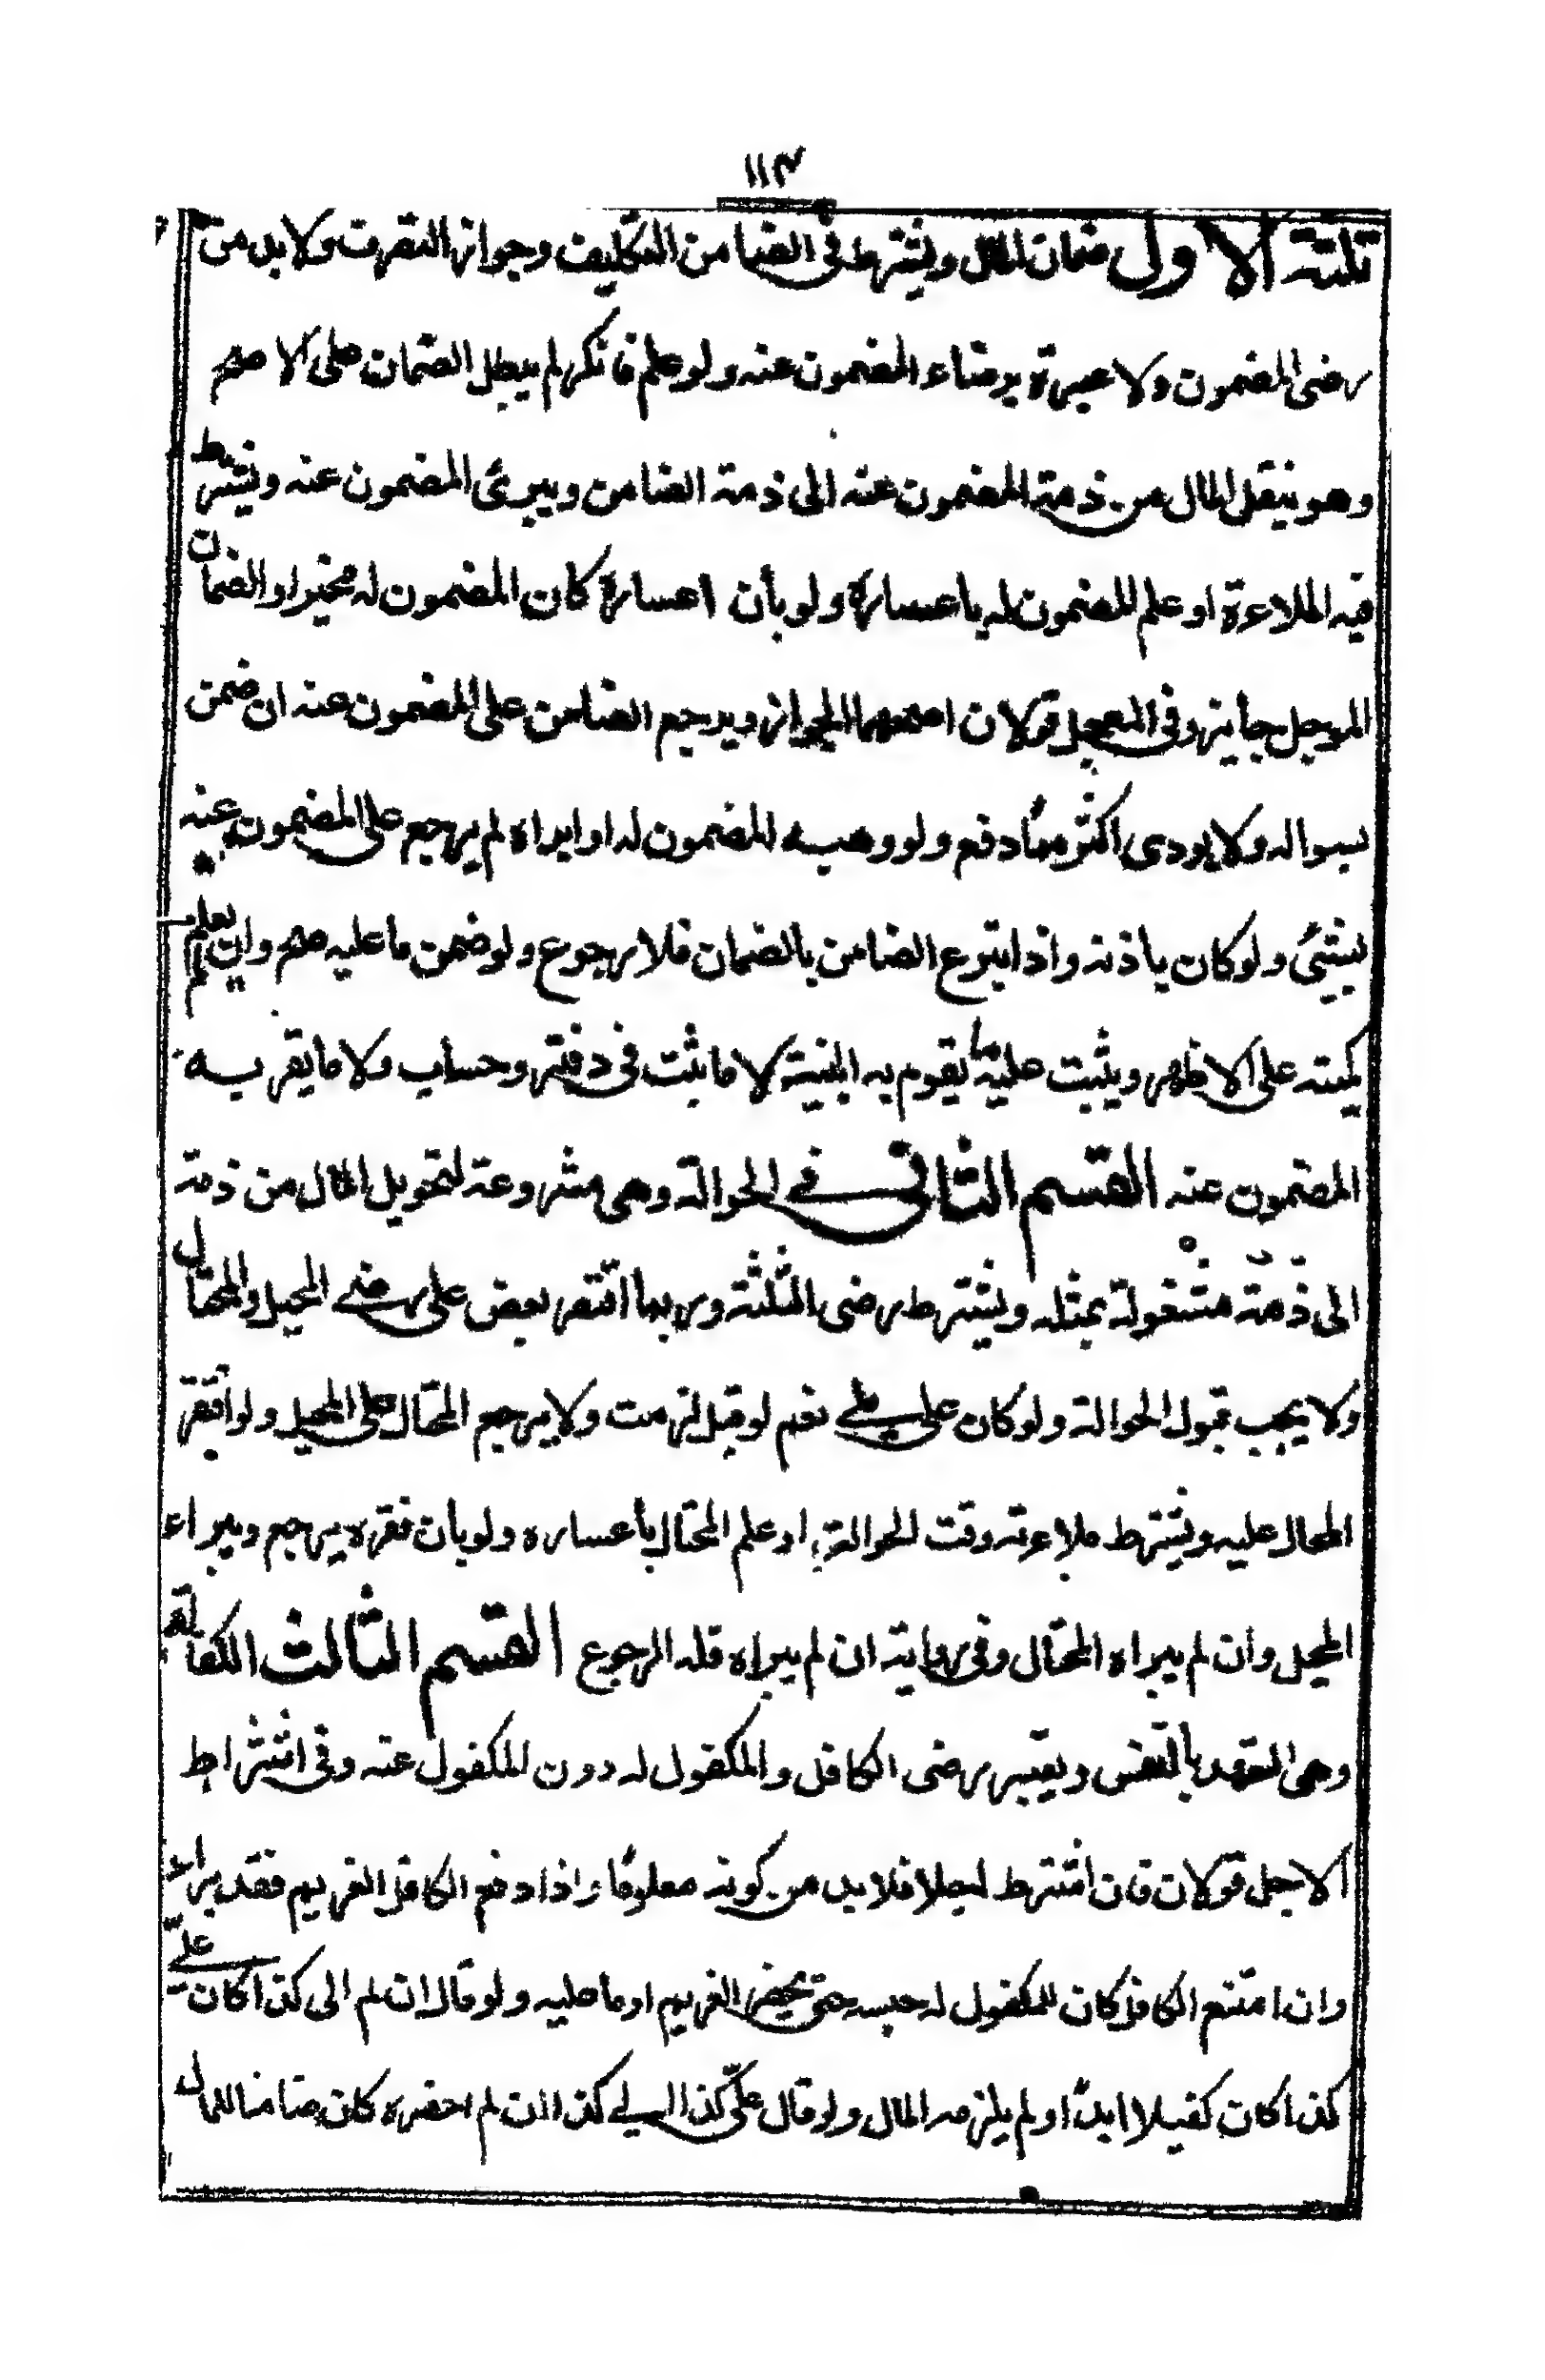 ١١٣
ثلثة الاول ضمان المال ويشترط فى الضامن التكليف وجواز التصرف ولابد من
رضى المضمون ولا عبرة برضاء المضمون عنه ولو علم فانكر لم يبطل الضمان على الاصح
وهو ينقل المال من ذمة المضمون عنه الى ذمة الضامن ويبرئ المضمون عنه ويشترط
فيه الملاءة او علم المضمون له باعساره ولو بأن اعساره كان المضمون له مخيرا والضمان
الموجل جايز وفى المعجل قولان اصحهما الجواز ويرجع الضامن على المضمون عنه ان ضمن
بسواله ولا يودى اكثر مما دفع ولو وهبه المضمون له او ابراه لم يرجع على المضمون عنه
بشئ ولو كان باذنه واذا تبرع الضامن بالضمان فلا رجوع ولو ضمن ما عليه صح وان لم يعلم
كميته على الاظهر ويثبت عليه ما تقوم به البنية لا ما يثبت فى دفتر وحساب ولا ما يقر به
المضمون عنه القسم الثانى فى الحوالة وهى مشروعة لتحويل المال من ذمة
الى ذمة مشغولة بمثله ويشترط رضى الثلثة وربما اقتصر بعض على رضى المحيل والمحتال
ولا يجب قبول الحوالة ولو كان على ملى نعم لو قبل لزمت ولا يرجع المحتال على المحيل ولو افتقر
المحال عليه ويشترط ملاءته وقت الحوالة او علم المحتال بأعساره ولو بأن فقره يرجع ويبراء
المحيل وان لم يبراه المحتال وفى رواية ان لم يبراه فله الرجوع القسم الثالث الكفالة
وهى التعهد بالنفس ويعتبر رضى الكافل والمكفول له دون المكفول عنه وفى اشتراط
الاجل قولان فان اشترط اجلا فلابد من كونه معلومًا واذا دفع الكافل الغريم فقد براء
وان امتنع الكافل كان للمكفول له حبسه حتى يحضر الغريم او ما عليه ولو قال ان لم الى كذا كان علىّ
كذا كان كفيلا ابدًا ولم يلزمه المال ولو قال علىّ كذا الى كذا ان لم احضره كان ضامنا للمال